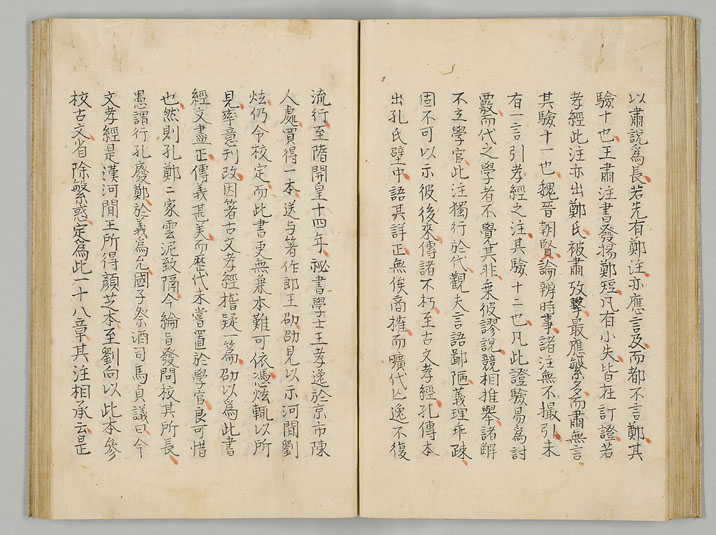 以肅說爲長若先有鄭注亦應言及而都不言鄭其
驗十也王肅注書發揚鄭短凡有小失皆在訂證若
孝經此注亦出鄭氏被肅攻擊最應繁多而肅無言
其驗十一也魏晉朝賢論辨時事諸注無不撮引未
有一言引孝經之注其驗十二也凡此證驗易爲討
覈而代之學者不覺其非乘彼謬說競相推舉諸解
不立學官此注獨行於代觀夫言語鄙陋義理乖疎
固不可以示彼後來傳諸不朽至古文孝經孔傳本
出孔氏壁中語其詳正無俟商搉而曠代亾逸不復
流行至隋開皇十四年祕書學士王孝逸於京市陳
人處買得一本送与著作郎王劭劭見以示河間劉
炫仍令校定而此書更無兼本難可依憑炫輒以所
見率意刊改因著古文孝經稽疑一篇劭以爲此書
經文盡正傳義甚美而歷代未嘗置於學官良可惜
也然則孔鄭二家雲泥致隔今綸旨發問校其所長
愚謂行孔廢鄭於義爲允國子祭酒司馬貞議曰今
文孝經是漢河間王所得顏芝本至劉向以此本參
校古文省除繁惑定爲此一十八章其注相承云是